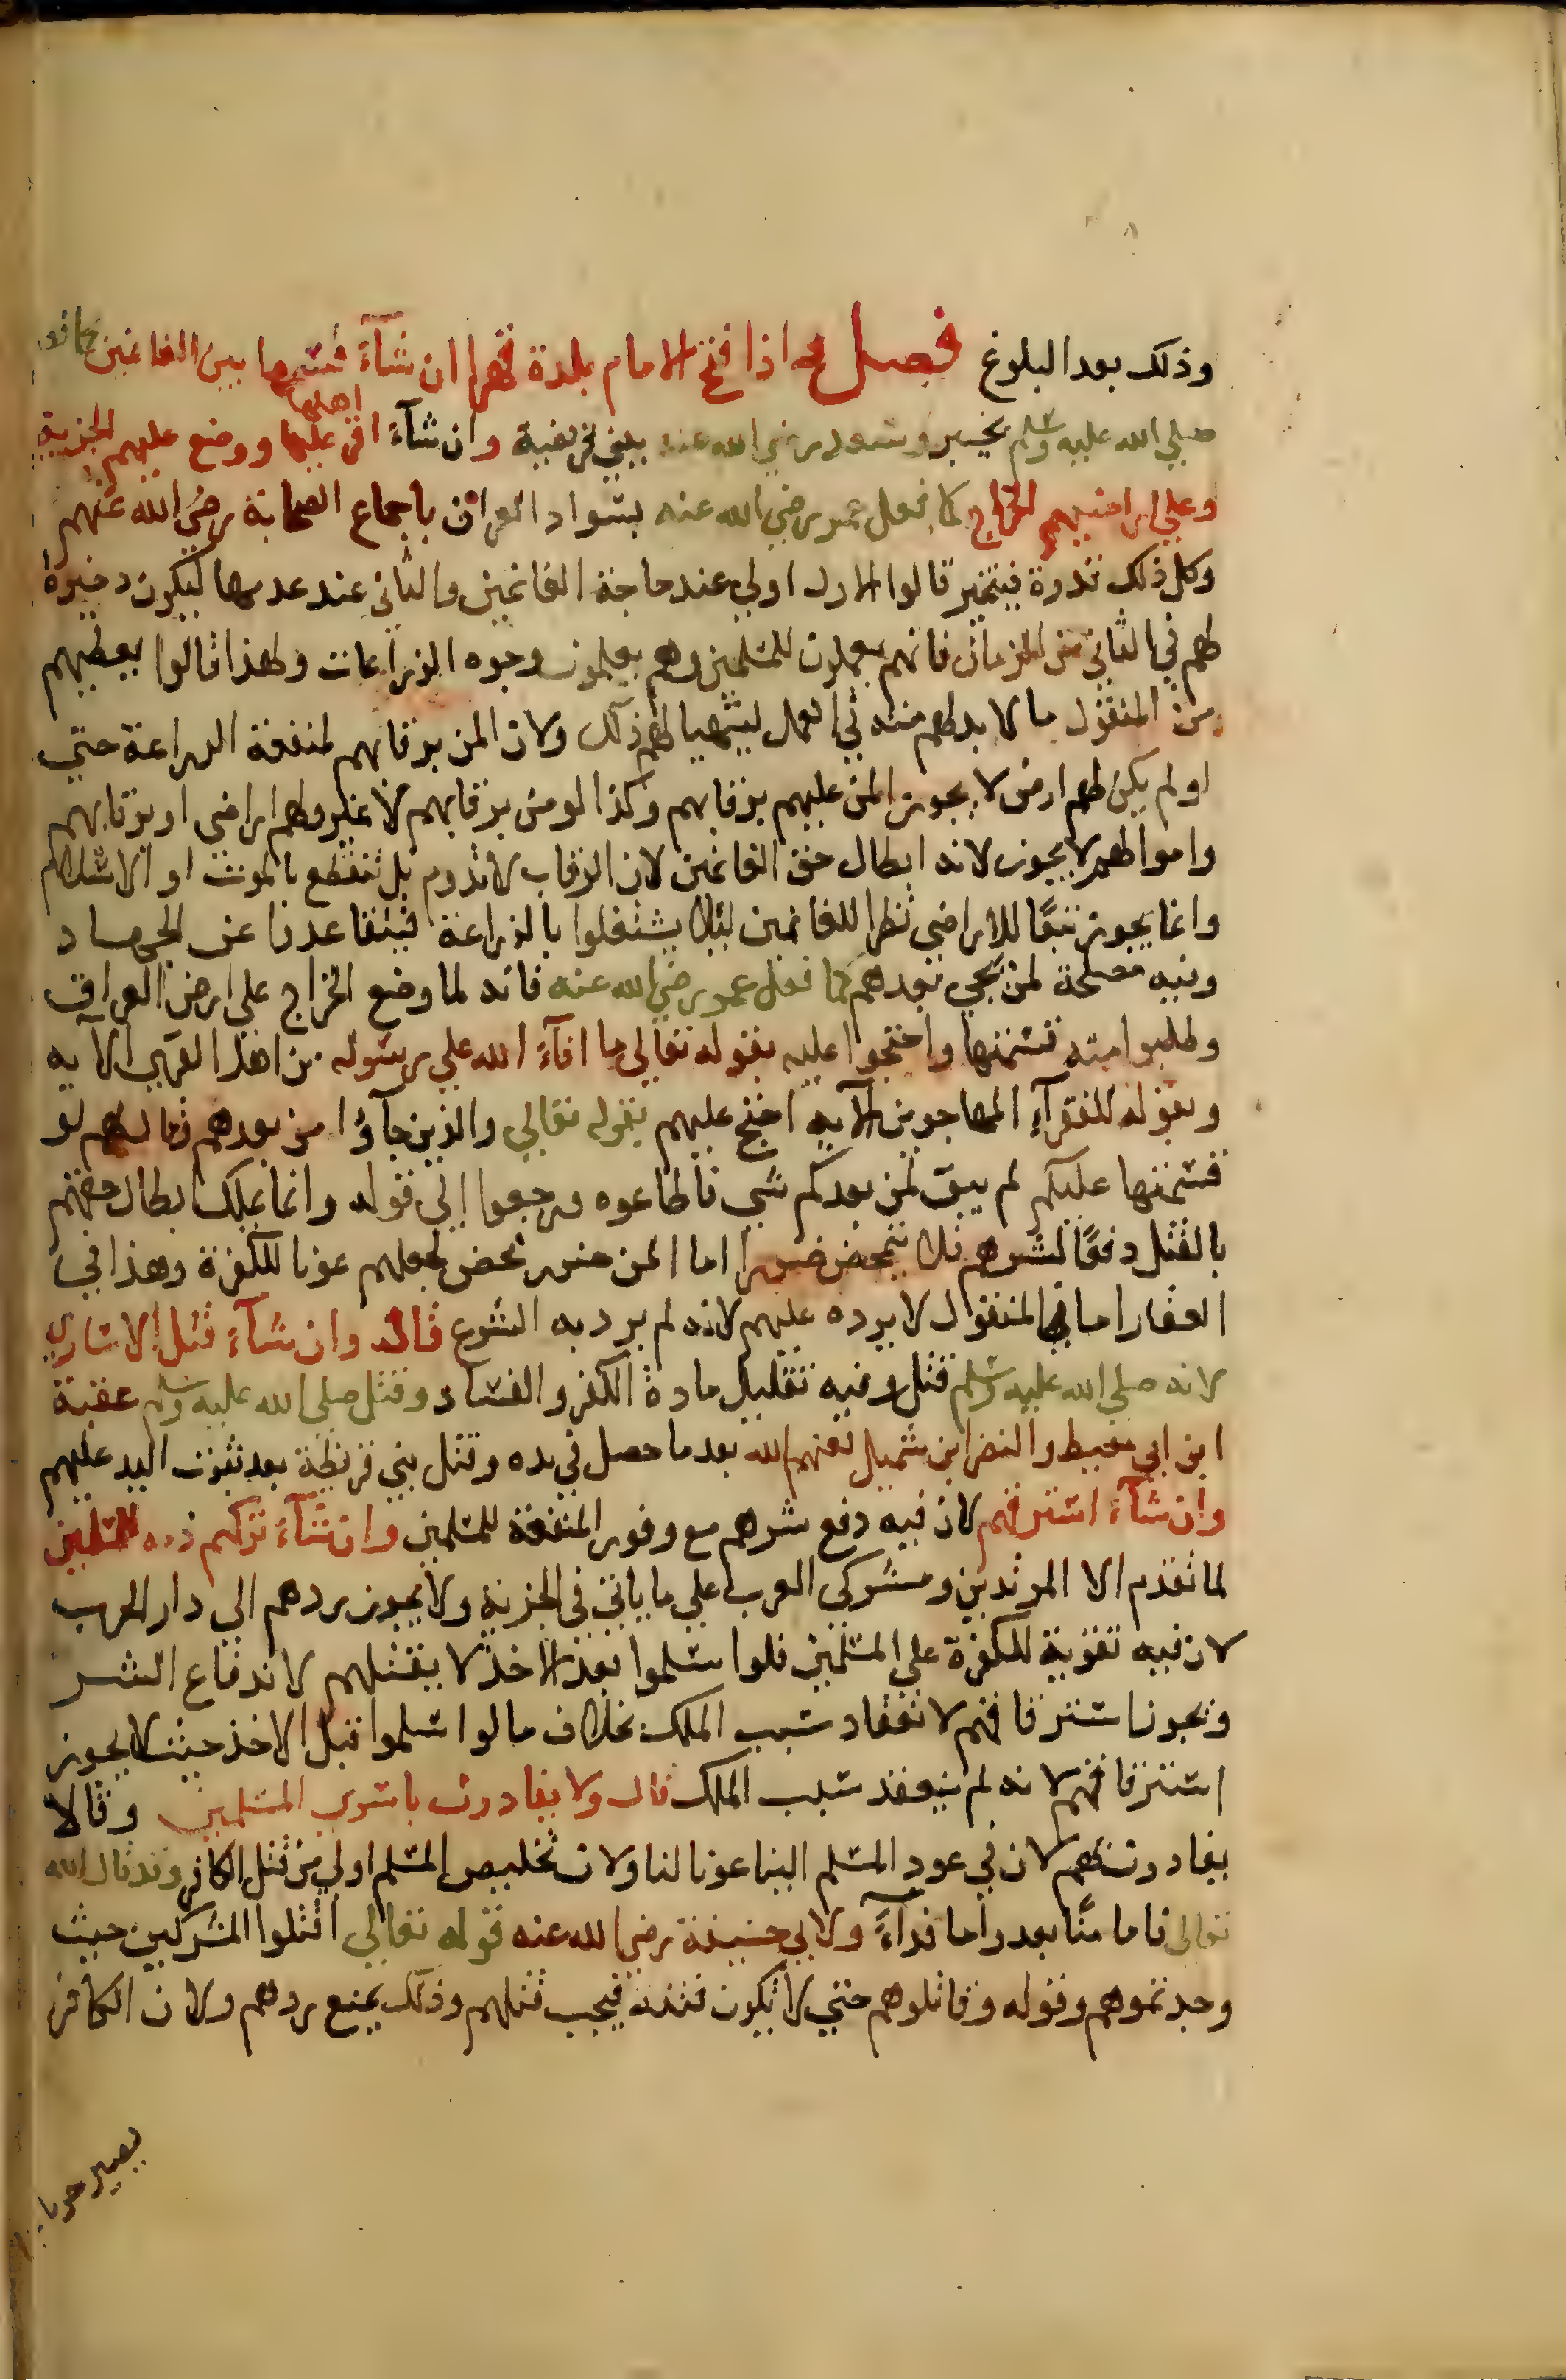 وذلك بعد البلوغ فصل اذا فتح الامام بلدة قهرا ان شآء قسمها بين الغانمين كما فعل
صلي الله عليه وسلم بخيبر وسعد رضي الله عنه ببني قريضة وان شآء اقر اهلها عليها ووضع عليهم الجزية
وعلي اراضيهم الخراج كما فعل عمر رضي الله عنه بسواد العراق باجماع الصحابة رضي الله عنهم
وكل ذلك قدوة فيتخير قالوا الاول اولي عند حاجة الغانمين والثاني عند عدمها ليكون ذخيرة
لهم في الثاني من الزمان فانهم يعملون للمسلمين وهم يعلمون وجوه الزراعات ولهذا قالوا يعطيهم
من المنقول ما لا بد لهم منه في العمل ليتهيا لهم ذلك ولان المن برقابهم لمنفعة الزراعة حتي
لو لم يكن لهم ارض لا يجوز المن عليهم برقابهم وكذا لو من برقابهم لا غير ولهم اراضي او برقابهم
واموالهم لا يجوز لانه ابطال حق الغانمين لان الرقاب لا تدوم بل تنقطع بالموت او الاسلام
وانما يجوز تبعًا للاراضي نظرا للغانمين لئلا يشتغلوا بالزراعة فيتقاعدنا عن الجهاد
وفيه مصلحة لمن يجي بعدهم كما فعل عمر رضي الله عنه فانه لما وضع الخراج علي ارض العراق
وطلبوا منه قسمتها واحتجوا عليه بقوله تعالي ما افآء الله علي رسوله من اهل القري الآيه
وبقوله للفقرآء المهاجرين الآيه احتج عليهم بقوله تعالي والذين جآؤا من بعدهم وقال لهم لو
قسمتها عليكم لم يبق لمن بعدكم شي فاطاعوه ورجعوا إلي قوله وانما يملك ابطال حقهم
بالقتل دفعًا لشرهم فلا يتمحض ضررا اما المن ضرر محض لجعلهم عونا للكفرة وهذا في
العقار اما في المنقول لا يرده عليهم لانه لم يرد به الشرع قال وان شآء قتل الاساري
لانه صلي الله عليه وسلم قتل وفيه تقليل مادة الكفر والفساد وقتل صلي الله عليه وسلم عقبة
ابن ابي معيط والنضر ابن شميل لعنهم الله بعد ما حصل في يده وقتل بني قريظة بعد ثبوت اليد عليهم
وان شآء استرقهم لان فيه دفع شرهم مع وفور المنفعة للمسلمين وان شآء تركهم ذمه للمسلمين
لما تقدم الا المرتدين ومشركي العرب علي ما ياتي في الجزية ولا يجوز ردهم الي دار الحرب
لان فيه تقوية للكفرة علي المسلمين فلو اسلموا بعد الاخذ لا يقتلهم لاندفاع الشر
ويجوز استرقاقهم لانعقاد سبب الملك بخلاف ما لو اسلموا قبل الاخذ حيث لا يجوز
استرقاقهم لانه لم ينعقد سبب الملك قال ولا يفادون باسري المسلمين وقالا
يفادون بهم لان في عود المسلم الينا عونا لنا ولان تخليص المسلم اولي من قتل الكافر وقد قال الله
تعالي فاما منًّا بعد واما فدآءً ولابي حنيفة رضي الله عنه قوله تعالي اقتلوا المشركين حيث
وجدتموهم وقوله وقاتلوهم حتي لا تكون فتنه فيجب قتلهم وذلك يمنع ردهم ولان الكافر
يصير حربا